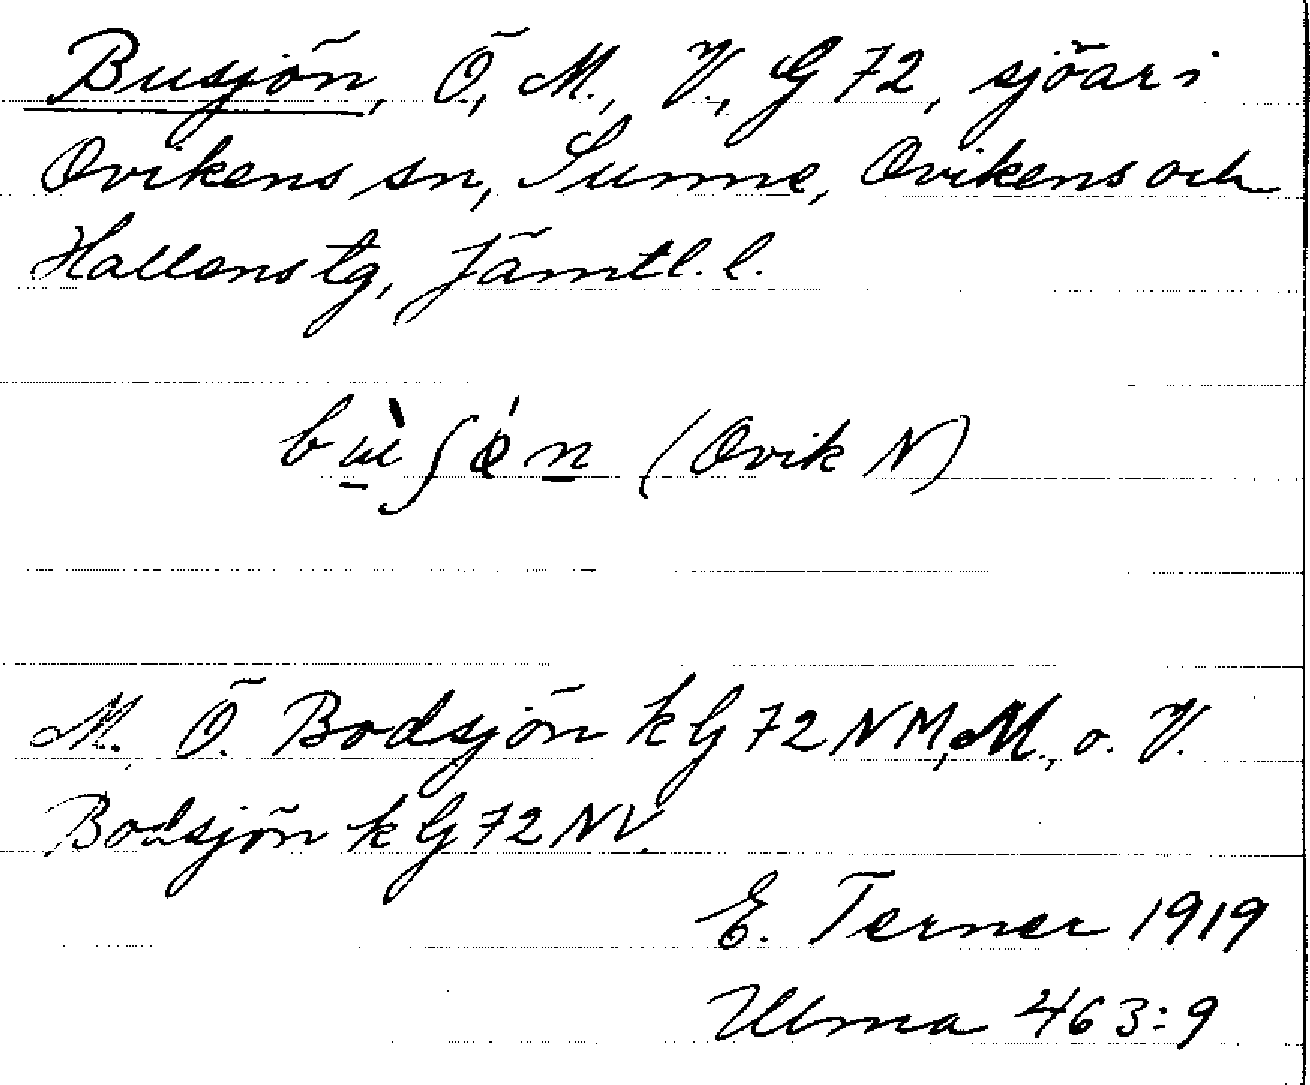 Busjön, Ö., M., V., G 72, sjöar i
Ovikens sn, Sunne, Ovikens och
Hallens tg, Jämtl. l.
(Ovik N)
M. Ö. Bodsjön k G 72 NM, M., o. V.
Bodsjön k G 72 NV.
E. Terner 1919
Ulma 463:9